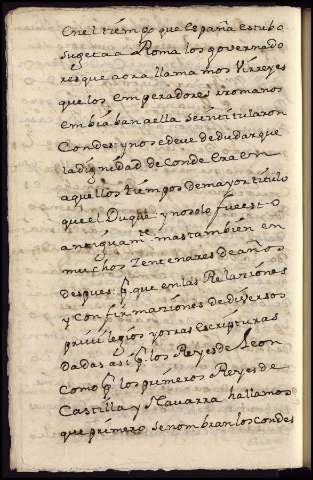 en el tiempo que España estubo
sugeta a Roma los governado
res que aora llamamos Virreyes
que los emperadores rromanos
embiaban a ella se intitularon
Condes: y no se deve de dudar que
la dignidad de Conde era en
aquellos tiempos de mayor titulo
que el Duque: y no solo fue esto
antiguamte. mas tambien en
muchos Zentenares de años
despues: pr. que en las Relaziones
y confirmaziones de diversos
privilegios y otras escripturas
dadas asi pr. los Reyes de Leon
como pr. los primeros Reyes de
Castilla y Navarra hallamos
que primero se nombran los condes